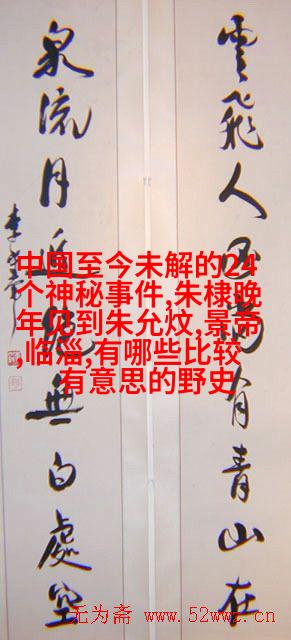 雲飛人有青山在
泉流月無白處空
李
中国至今未解的24
个神秘事件,朱棣晚
年见到朱允炆,景帝
,临淄,有哪些比较
有意思的野史
无为斋 www.52wwz.cn